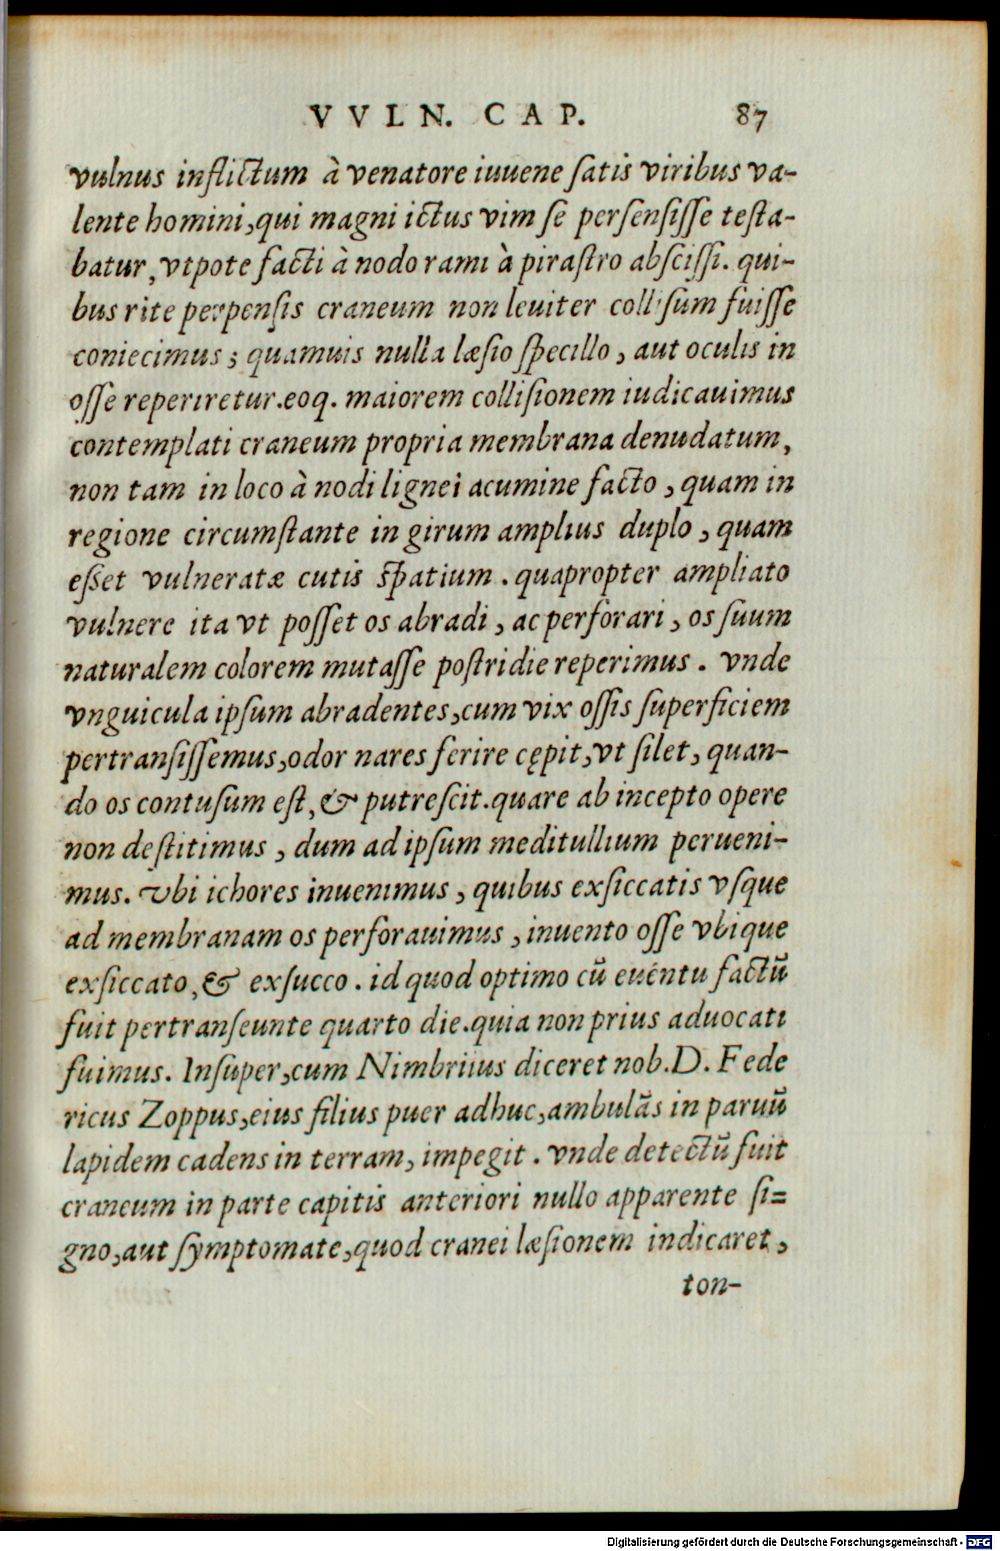 VVLN. CAP. 87
vulnus inflictum à venatore iuuene ſatis viribus va-
lente homini, qui magni ictus vim ſe perſenſiſſe teſta-
batur, vtpote facti à nodo rami à piraſtro abſciſſi. qui-
bus rite perpenſis craneum non leuiter colliſum fuiſſe
coniecimus; quamuis nulla læſio ſpecillo, aut oculis in
oſſe reperiretur. eoq. maiorem colliſionem iudicauimus
contemplati craneum propria membrana denudatum,
non tam in loco à nodi lignei acumine facto, quam in
regione circumſtante in girum amplius duplo, quam
eſſet vulneratæ cutis ſpatium. quapropter ampliato
vulnere ita vt poſſet os abradi, ac perforari, os ſuum
naturalem colorem mutaſſe poſtridie reperimus. vnde
vnguicula ipſum abradentes, cum vix oſſis ſuperficiem
pertranſiſſemus, odor nares ferire cępit, vt ſilet, quan-
do os contuſum eſt, & putreſcit. quare ab incepto opere
non deſtitimus, dum ad ipſum meditullium perueni-
mus. vbi ichores inuenimus, quibus exſiccatis vſque
ad membranam os perforauimus, inuento oſſe vbique
exſiccato, & exſucco. id quod optimo cū euentu factū
fuit pertranſeunte quarto die. quia non prius aduocati
fuimus. Inſuper, cum Nimbriius diceret nob. D. Fede
ricus Zoppus, eius filius puer adhuc, ambulãs in paruū
lapidem cadens in terram, impegit. vnde detectū fuit
craneum in parte capitis anteriori nullo apparente ſi-
gno, aut ſymptomate, quod cranei læſionem indicaret,
ton-
Digitalisierung gefördert durch die Deutsche Forschungsgemeinschaft - DFG